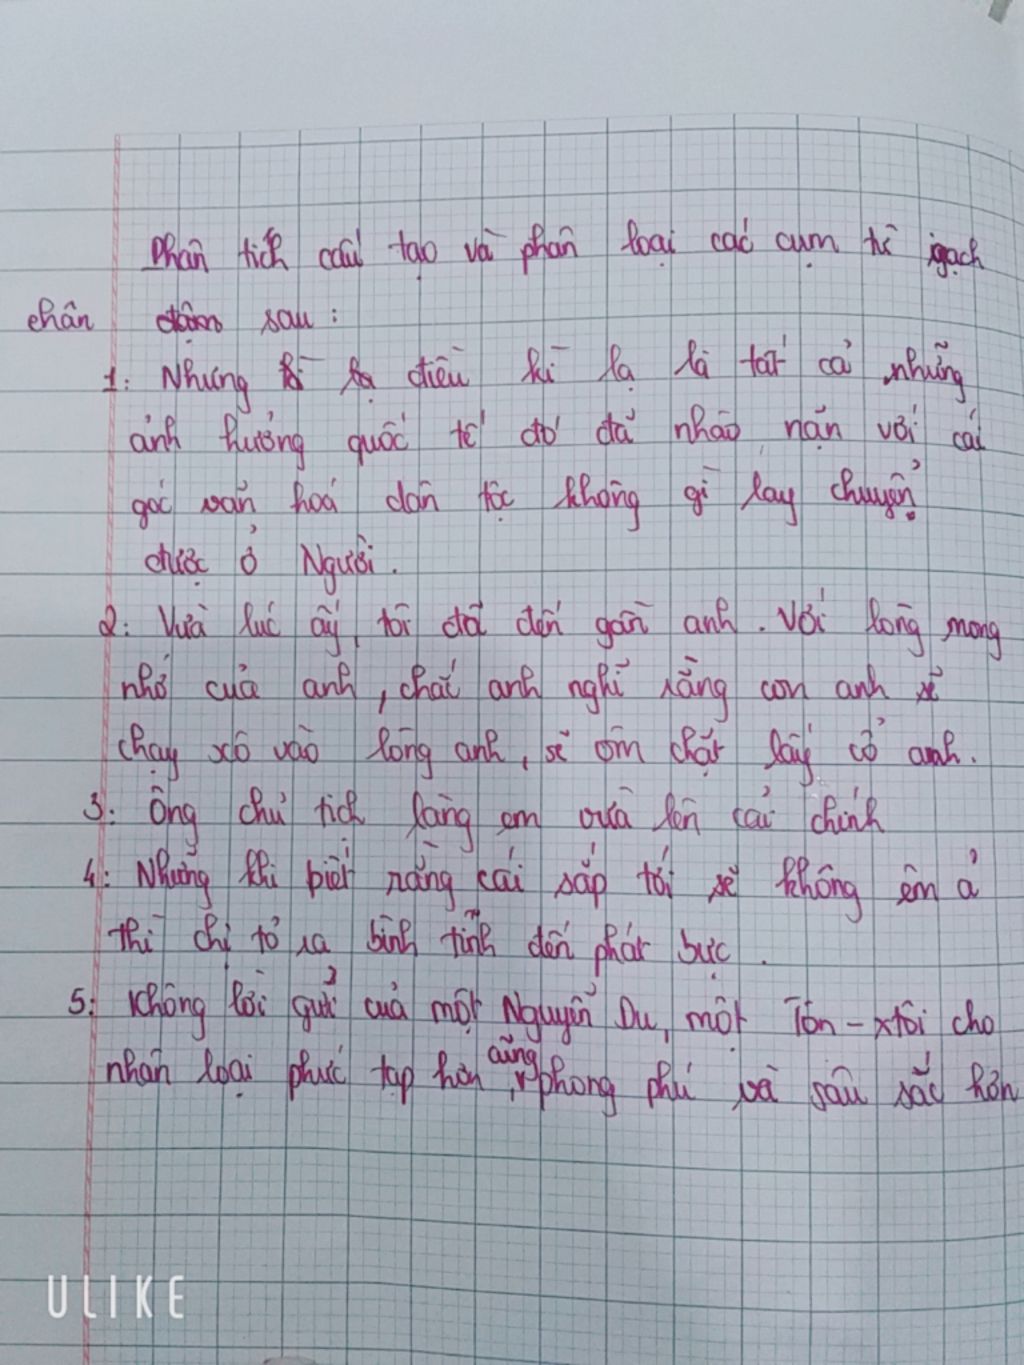 Phân tích cấu tạo và phân loại các cụm từ gạch
chân đậm sau :
1: Nhưng điều kì lạ là tất cả những
ảnh hưởng quốc tế đó đã nhào nặn với cái
gốc văn hoá dân tộc không gì lay chuyển
được ở Người.
2: Vừa lúc ấy, tôi đã đến gần anh. Với lòng mong
nhớ của anh, chắc anh nghĩ rằng con anh sẽ
chạy xô vào lòng anh, sẽ ôm chặt lấy cổ anh.
3: Ông chủ tịch làng em vừa lên cải chính
4: Nhưng khi biết rằng cái sắp tới sẽ không êm ả
thì chị tỏ ra bình tĩnh đến phát bực .
5: Không lời gửi của một Nguyễn Du, một Tôn-xtôi cho
nhân loại phức tạp hơn, cũng phong phú và sâu sắc hơn
ULIKE